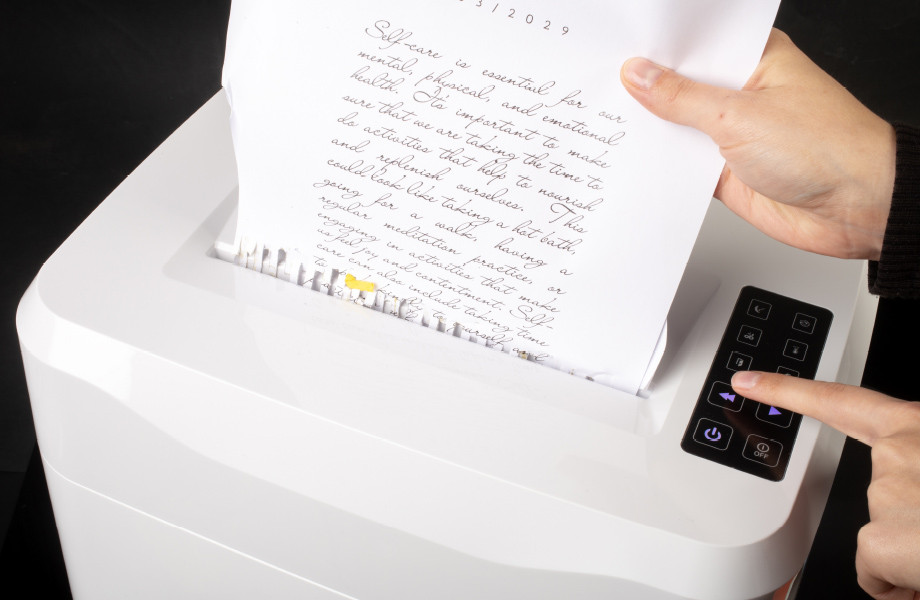 3 1 2 0 2 9
Self-care is essential for our
mental, physical, and emotional
health. It's important to make
sure that we are taking the time to
do activities that help to nourish
and replenish ourselves. This
could look like taking a hot bath,
going for a walk, having a
regular meditation practice, or
engaging in activities that make
us feel joy and contentment. Self-
care can also include taking time
to yourself and
OFF